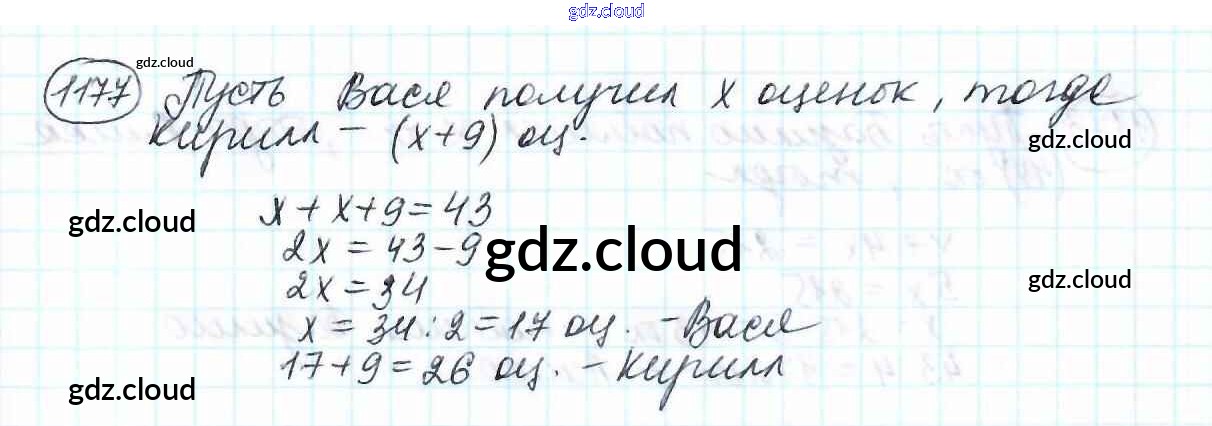 gdz.cloud
gdz.cloud
1177 Пусть Вася получил x оценок, тогда
Кирилл – (x+9) оц.
gdz.cloud
x + x + 9 = 43
gdz.cloud
2x = 43 – 9
gdz.cloud
2x = 34
gdz.cloud
x = 34 : 2 = 17 оц. – Вася
17 + 9 = 26 оц. – Кирилл
gdz.cloud
gdz.cloud